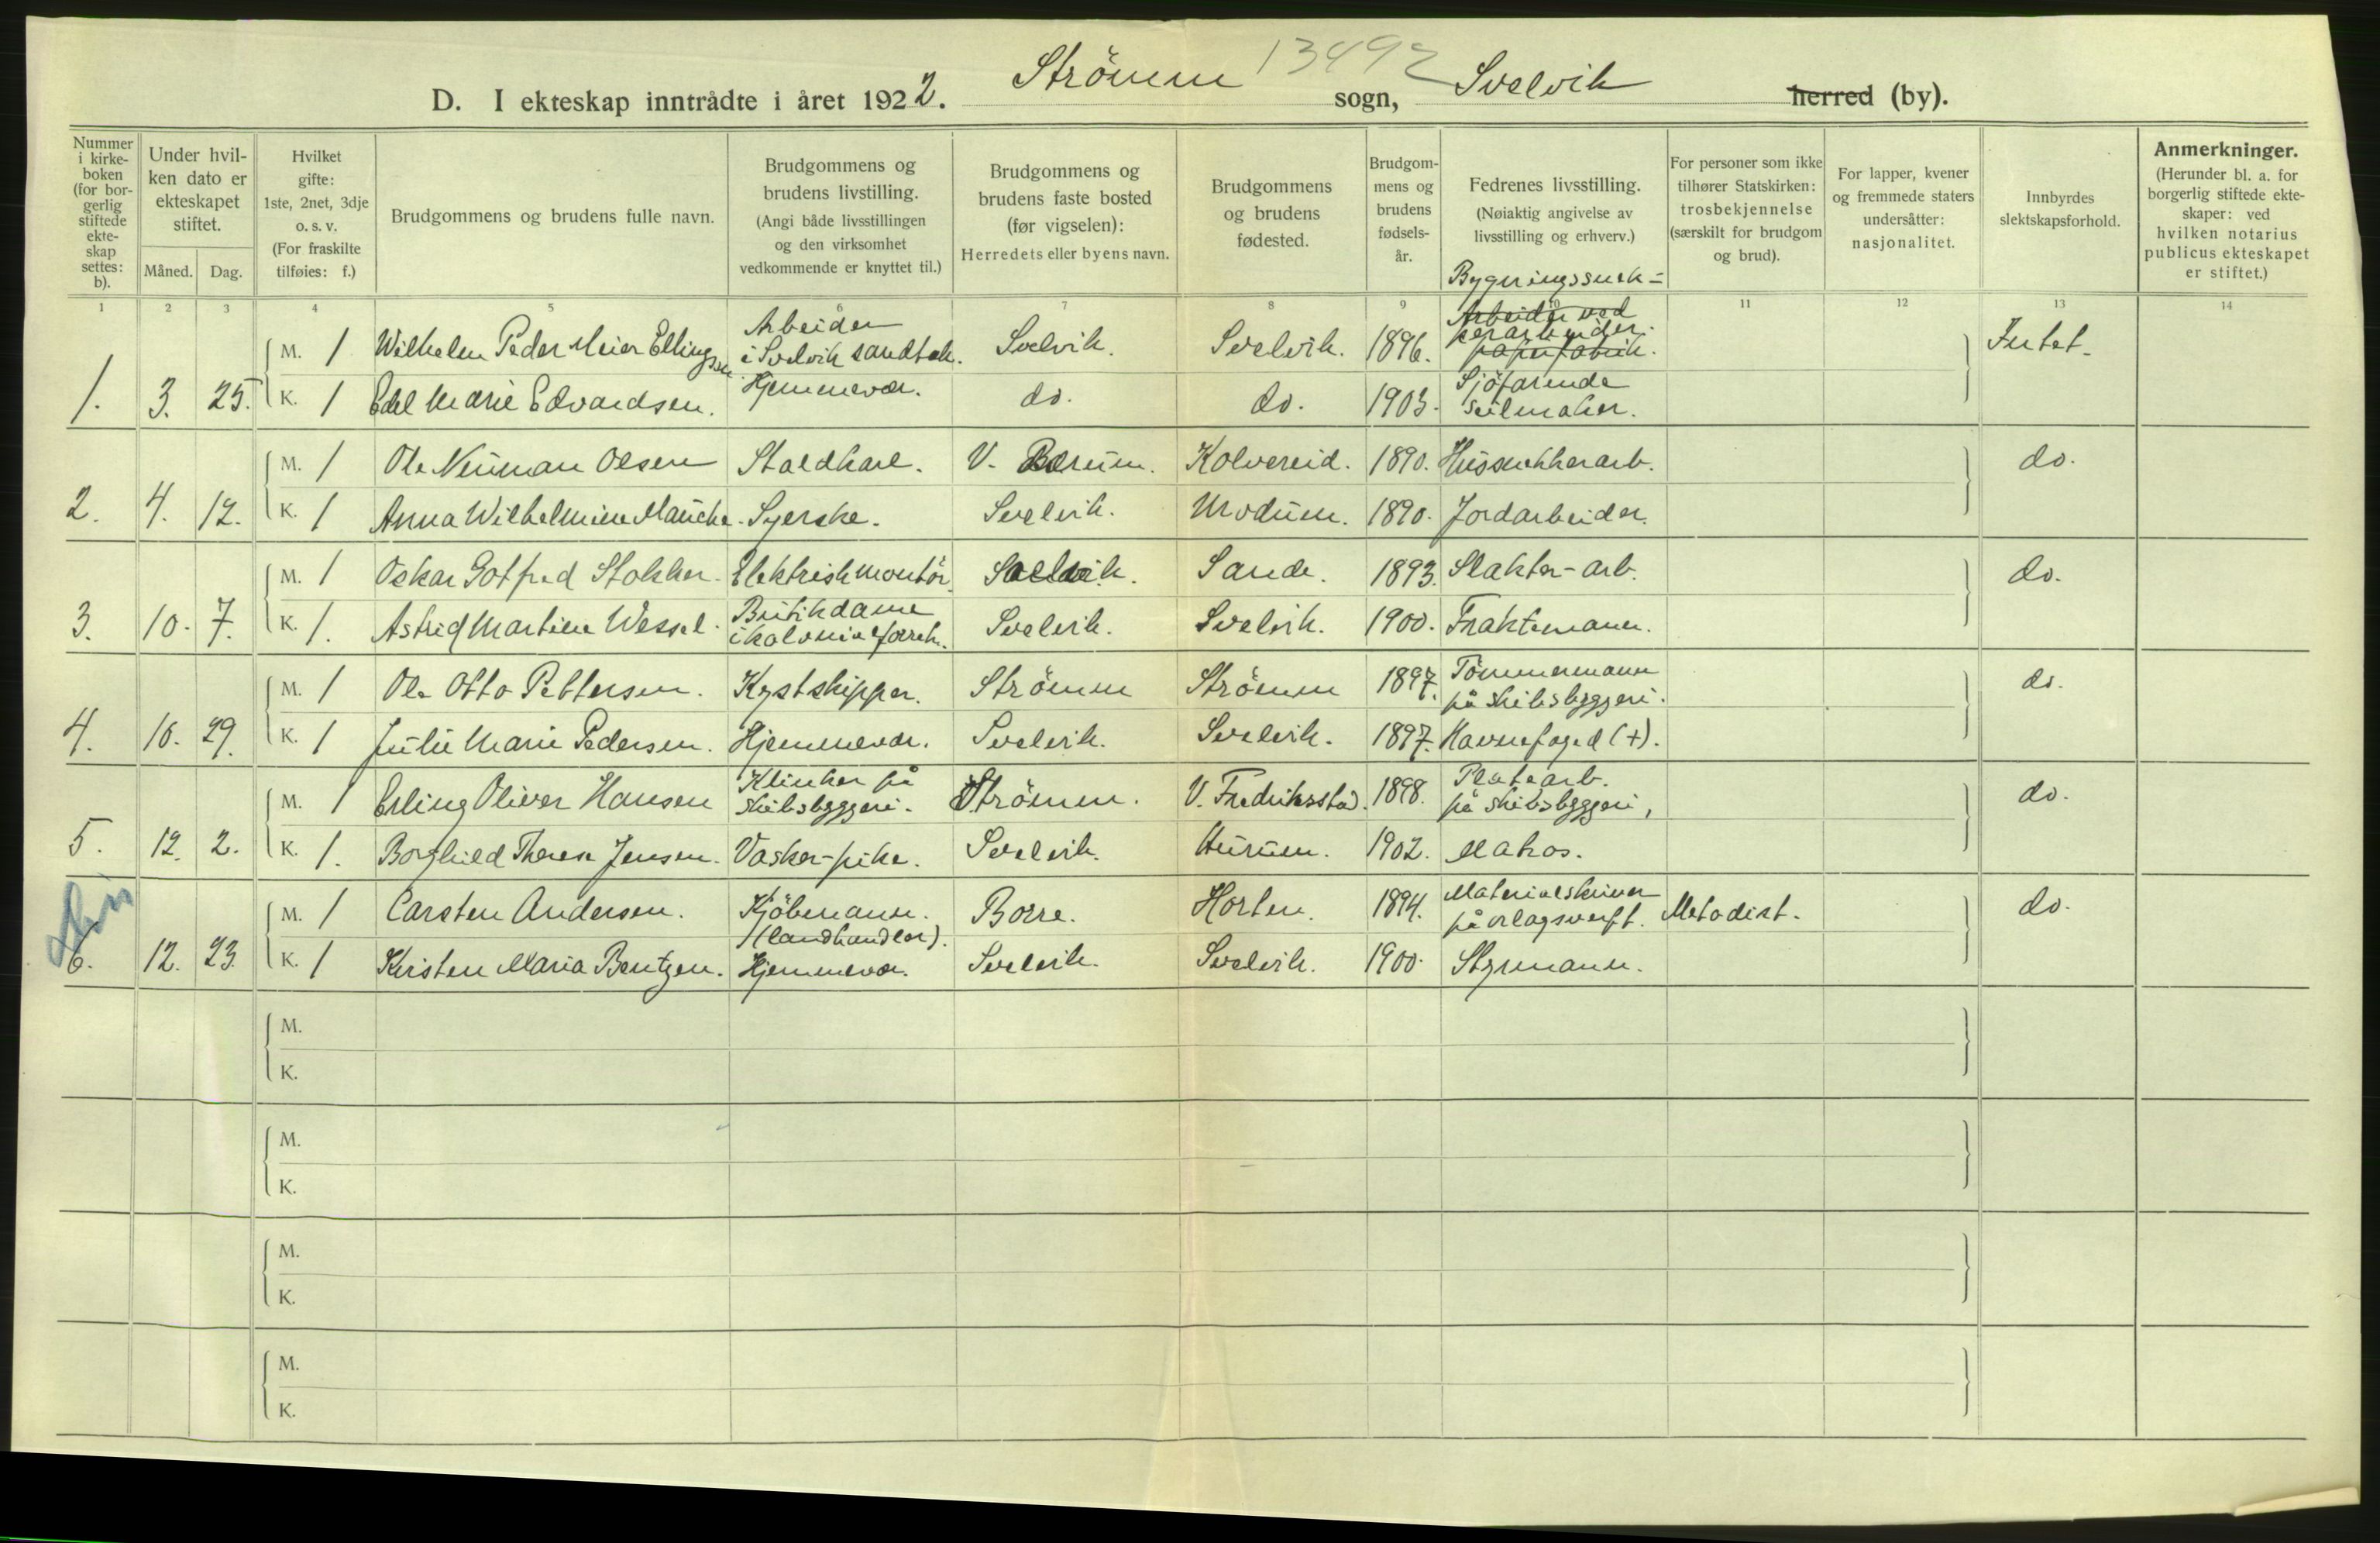 13492
D. I ekteskap inntrådte i året 1922. Strömm sogn, Svelvik herred (by).
Nummer i kirkeboken (for borgerlig stiftede ekteskap settes: b).
Under hvilken dato er ekteskapet stiftet.
Måned. Dag.
Hvilket gifte: 1ste, 2net, 3dje o. s. v. (For fraskilte tilføies: f.)
Brudgommens og brudens fulle navn.
Brudgommens og brudens livstilling. (Angi både livsstillingen og den virksomhet vedkommende er knyttet til.)
Brudgommens og brudens faste bosted (før vigselen): Herredets eller byens navn.
Brudgommens og brudens fødested.
Brudgommens og brudens fødselsår.
Fedrenes livsstilling. (Nøiaktig angivelse av livsstilling og erhverv.)
For personer som ikke tilhører Statskirken: trosbekjennelse (særskilt for brudgom og brud).
For lapper, kvener og fremmede staters undersåtter: nasjonalitet.
Innbyrdes slektskapsforhold.
Anmerkninger. (Herunder bl. a. for borgerlig stiftede ekteskaper: ved hvilken notarius publicus ekteskapet er stiftet.)
1 2 3 4 5 6 7 8 9 10 11 12 13 14
M. 1 Wilhelm Peder Meier Ellingsen Arbeider i Svelvik sandtak. Svelvik. Svelvik. 1896. Bygningssnek-kerarbeider. Arbeider ved papirfabrik. Intet.
1. 3. 25. K. 1 Edel Marie Edvardsen. Hjemmevær. do. do. 1903. Sjöfarende seilmaker.
M. 1 Ole Neuman Olsen Staldkarl. V. Bærum. Kolvereid. 1890. Hussnekkerarb. do.
2. 4. 12. K. 1 Anna Wilhelmine Maücke. Syerske. Svelvik. Modum. 1890. Jordarbeider.
M. 1 Oskar Gotfred Stokker. Elektrisk montör. Svelvik. Sande. 1893. Slakter-arb. do.
3. 10. 7. K. 1. Astrid Martine Wessel. Butikdame i kolonialforretn. Svelvik. Svelvik. 1900. Fraktemann.
M. 1 Ole Otto Pettersen. Kystskipper. Strömm Strömm 1897. Tömmermann på skibsbyggeri. do.
4. 10. 29. K. 1 Julie Marie Pedersen. Hjemmevær. Svelvik. Svelvik. 1897. Havnefoged (+).
M. 1 Erling Oliver Hansen Klinker på skibsbyggeri. Strömm. V. Fredriksstad. 1898. Platearb. på skibsbyggeri, do.
5. 12. 2. K. 1. Borghild Therese Jensen. Vasker-pike. Svelvik. Hurum. 1902. Matros.
M. 1 Carsten Andersen. Kjöbmann. (landhandler). Borre. Horten. 1894. Materialskriver på orlogsverft. Metodist. do.
6. 12. 23. K. 1 Kirsten Maria Bentzen. Hjemmevær. Svelvik. Svelvik. 1900. Styrmann.
M.
K.
M.
K.
M.
K.
M.
K.